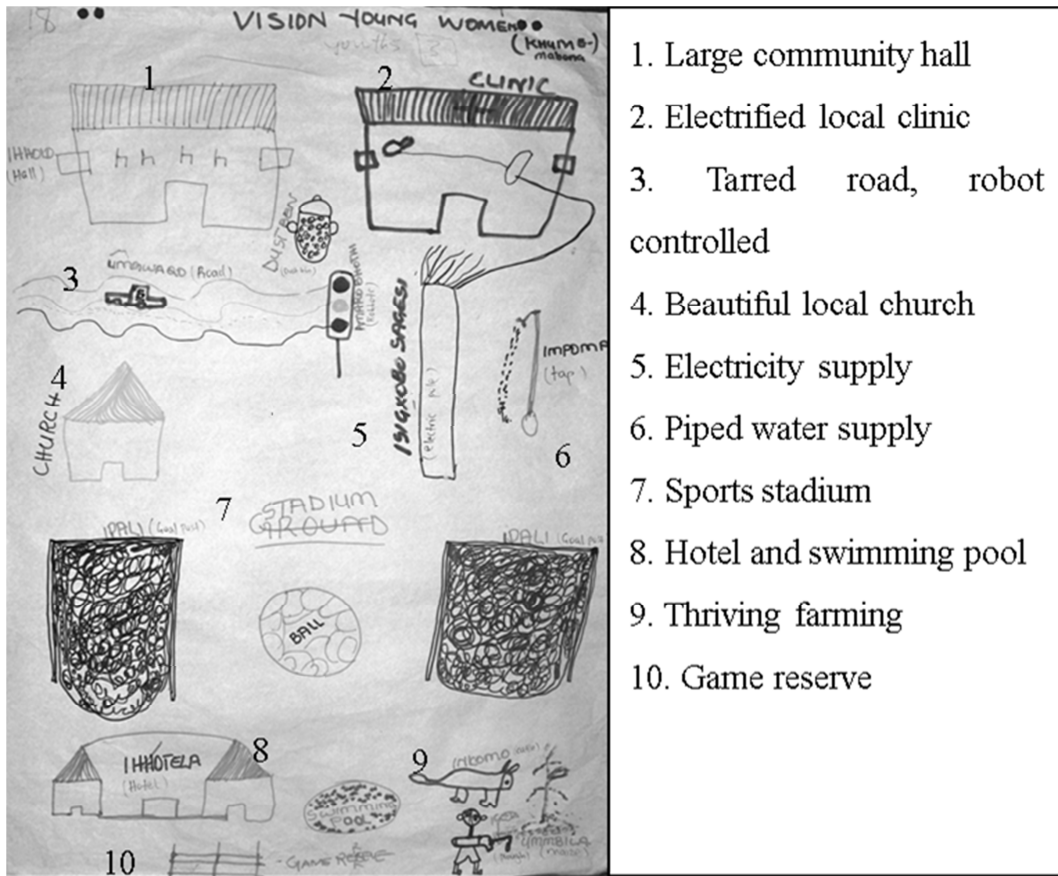 18
VISION YOUNG WOMEN
(KHUME-
mabana
youths 3
1
2
CLINIC
IHHOLO
(Hall)
DUSTBEN
(Dustbin)
3
(Road)
(Robots)
4
CHURCH
5
ISIGXOBO SAGESI
(electric pole)
IMPOMPI
(tap)
6
7
STADIUM
GROUND
IPALI (Goal post)
IPALI (Goal post)
BALL
8
IHHOTELA
(Hotel)
SWIMMING
POOL
9
INKOMO
UMMBILA
(maize)
10
-GAME
1. Large community hall
2. Electrified local clinic
3. Tarred road, robot
controlled
4. Beautiful local church
5. Electricity supply
6. Piped water supply
7. Sports stadium
8. Hotel and swimming pool
9. Thriving farming
10. Game reserve